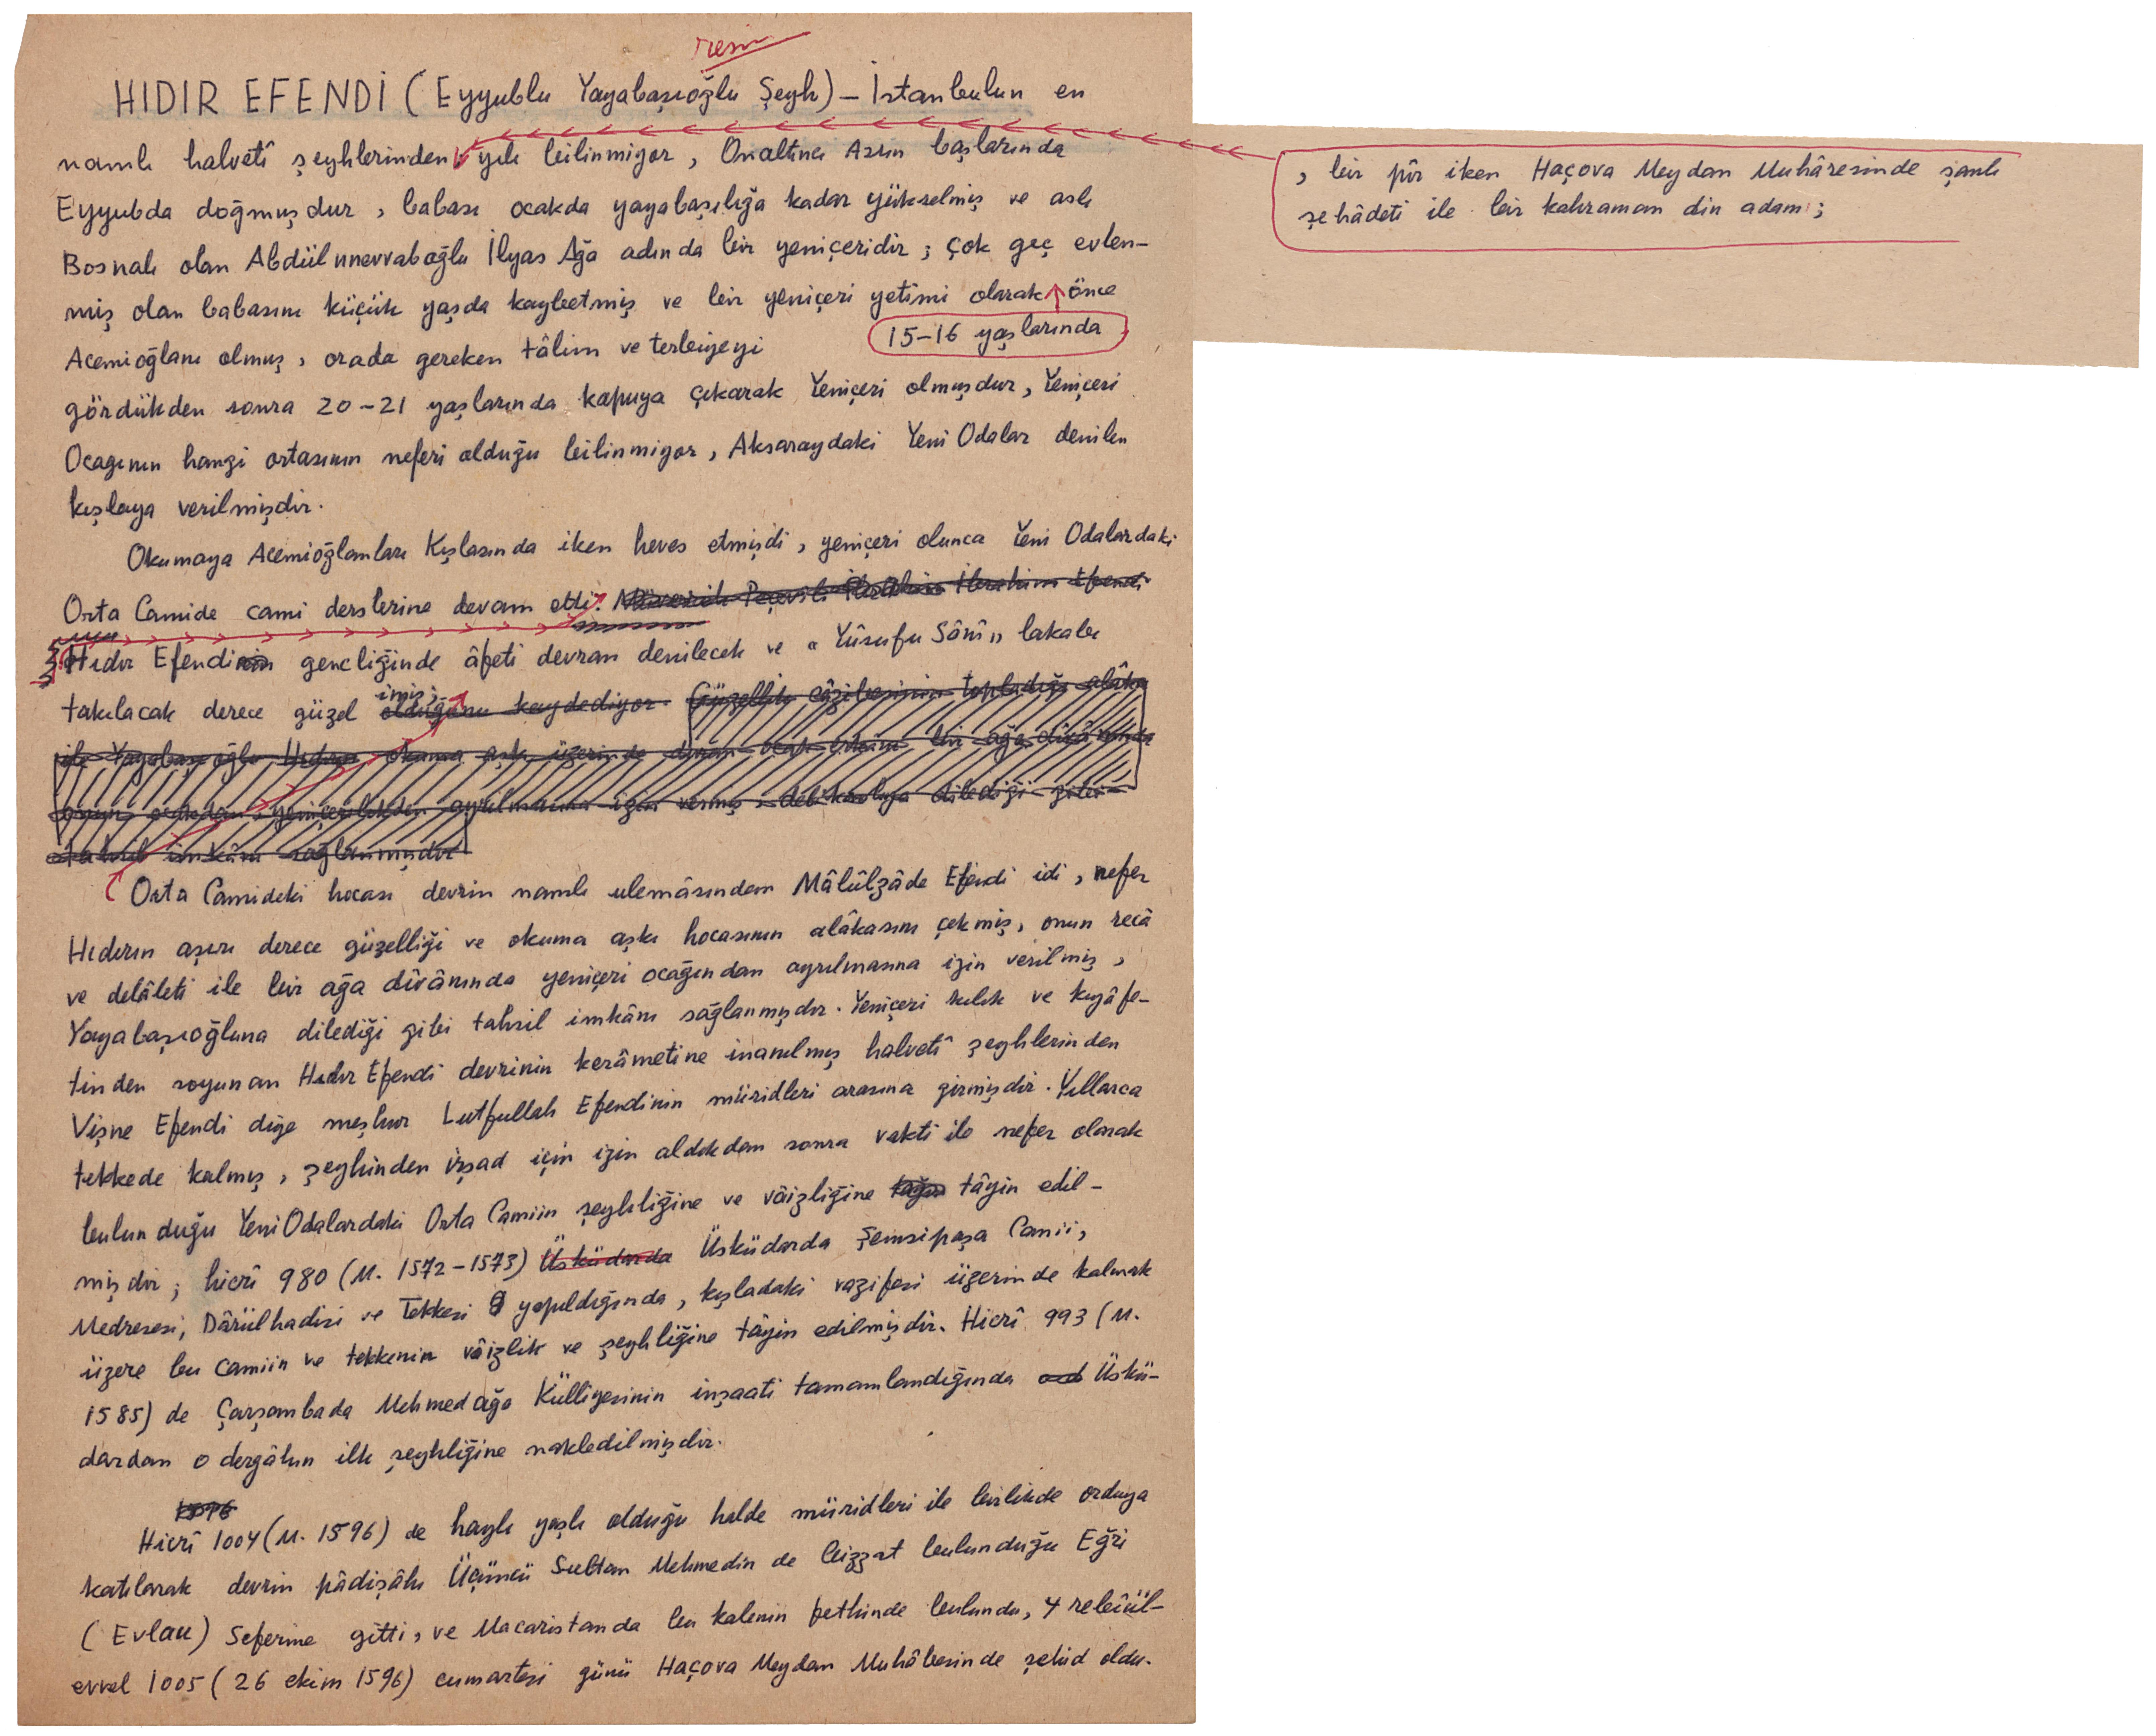 resim
HIDIR EFENDİ (Eyyublu Yayabaşıoğlu Şeyh) – İstanbulun en
namlı halvetî şeyhlerinden yılı bilinmiyor, Onaltıncı Asrın başlarında
, bir pîr iken Haçova Meydan Muhâresinde şanlı
şehâdeti ile bir kahraman din adamı;
Eyyubda doğmuşdur, babası ocakda yayabaşılığa kadar yükselmiş ve aslı
Bosnalı olan Abdülvehhaboğlu İlyas Ağa adında bir yeniçeridir; çok geç evlen-
miş olan babasını küçük yaşda kaybetmiş ve bir yeniçeri yetimi olarak önce
15–16 yaşlarında
Acemioğlanı olmuş, orada gereken tâlim ve terbiyeyi
gördükden sonra 20–21 yaşlarında kapuya çıkarak Yeniçeri olmuşdur, Yeniçeri
Ocagının hangi ortasının neferi olduğu bilinmiyor, Aksaraydaki Yeni Odalar denilen
kışlaya verilmişdir.
Okumaya Acemioğlanları Kışlasında iken heves etmişdi, yeniçeri olunca Yeni Odalardaki
Orta Camide cami derslerine devam etti. Müverrih Peçevili İbrahim Efendi
Hıdır Efendinin gençliğinde âfeti devran denilecek ve « Yûsufu Sânî » lakabı
imiş;
takılacak derece güzel olduğunu kaydediyor. Güzellik câzibesinin topladığı alâka
ile Yayabaşıoğlu Hıdırın okuma aşkı üzerinde duran ocak erkânı bir ağa dîvânında
onun ocakdan, yeniçerilikden ayrılmasına izin vermiş, delikanlıya dilediği gibi
tahsil imkânı sağlanmışdır
Orta Camideki hocası devrin namlı ulemâsından Mâlûlzâde Efendi idi, nefer
Hıdırın aşırı derece güzelliği ve okuma aşkı hocasının alâkasını çekmiş, onun recâ
ve delâleti ile bir ağa dîvânında yeniçeri ocağından ayrılmasına izin verilmiş,
Yayabaşıoğluna dilediği gibi tahsil imkânı sağlanmışdır. Yeniçeri kılık ve kıyâfe-
tinden soyunan Hıdır Efendi devrinin kerâmetine inanılmış halvetî şeyhlerinden
Vişne Efendi diye meşhur Lutfullah Efendinin müridleri arasına girmişdir. Yıllarca
tekkede kalmış, şeyhinden irşad için izin aldıkdan sonra vakti ile nefer olarak
bulunduğu Yeni Odalardaki Orta Camiin şeyhliğine ve vâizliğine tâyin edil-
mişdir; hicrî 980 (M. 1572–1573) Üsküdarda Üsküdarda Şemsipaşa Camii,
Medresesi, Dârülhadisi ve Tekkesi yapıldığında, kışladaki vazifesi üzerinde kalmak
üzere bu camiin ve tekkenin vâizlik ve şeyhliğine tâyin edilmişdir. Hicrî 993 (M.
1585) de Çarşambada Mehmedağa Külliyesinin inşaati tamamlandığında Üskü-
dardan o dergâhın ilk şeyhliğine nakledilmişdir.
1596
Hicrî 1004 (M. 1596) de haylı yaşlı olduğu halde müridleri ile birlikde orduya
katılarak devrin pâdişâhı Üçüncü Sultan Mehmedin de bizzat bulunduğu Eğri
(Evlau) Seferine gitti, ve Macaristanda bu kalenin fethinde bulundu, 4 rebiül-
evvel 1005 (26 ekim 1596) cumartesi günü Haçova Meydan Muhâbesinde şehid oldu.